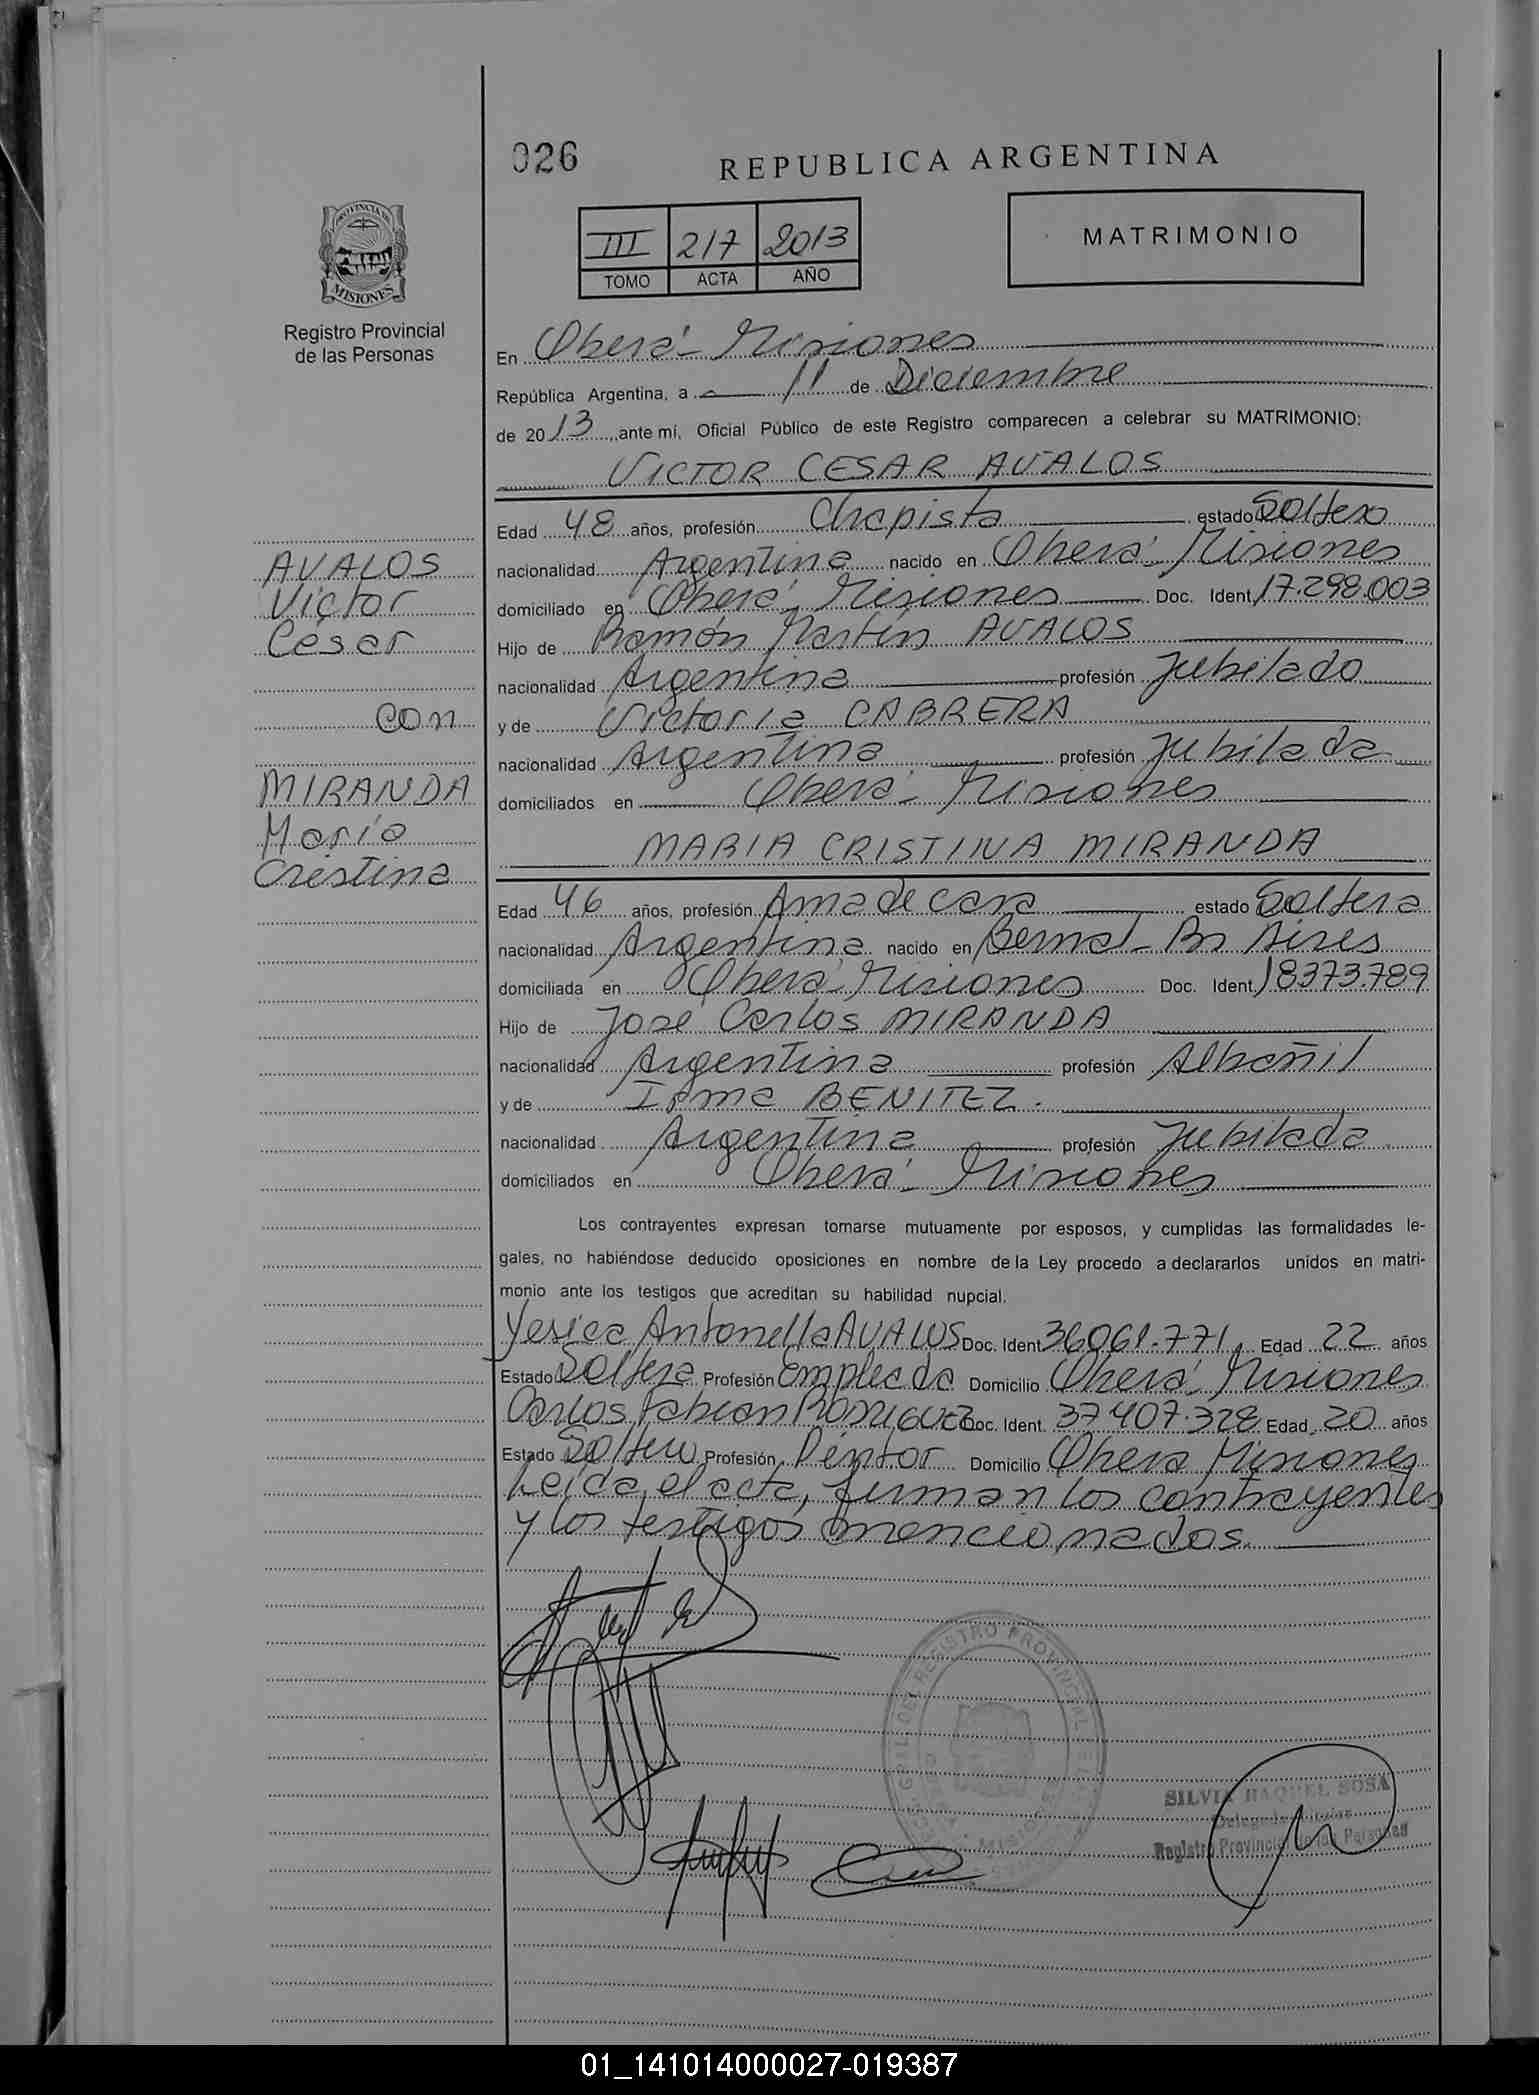 026
REPUBLICA ARGENTINA
III 217 2013
TOMO ACTA AÑO
MATRIMONIO
PROVINCIA DE
MISIONES
Registro Provincial
de las Personas
En Oberá - Misiones
República Argentina, a 11 de Diciembre
de 2013, ante mí, Oficial Público de este Registro comparecen a celebrar su MATRIMONIO:
VICTOR CESAR AVALOS
Edad 48 años, profesión Chapista estado Soltero
nacionalidad Argentina nacido en Oberá - Misiones
domiciliado en Oberá - Misiones Doc. Ident. 17.298.003
Hijo de Ramón Martín AVALOS
nacionalidad Argentina profesión Jubilado
y de Victoria CABRERA
nacionalidad Argentina profesión Jubilada
domiciliados en Oberá - Misiones
AVALOS
Víctor
César
con
MIRANDA
María
Cristina
MARIA CRISTINA MIRANDA
Edad 46 años, profesión Ama de casa estado Soltera
nacionalidad Argentina nacido en Bernal - Bs Aires
domiciliada en Oberá - Misiones Doc. Ident. 18373.789
Hijo de José Carlos MIRANDA
nacionalidad Argentina profesión Albañil
y de Irma BENITEZ.
nacionalidad Argentina profesión Jubilada
domiciliados en Oberá - Misiones
Los contrayentes expresan tomarse mutuamente por esposos, y cumplidas las formalidades le-
gales, no habiéndose deducido oposiciones en nombre de la Ley procedo a declararlos unidos en matri-
monio ante los testigos que acreditan su habilidad nupcial.
Yesica Antonella AVALOS Doc. Ident. 36061.771 Edad 22 años
Estado Soltera Profesión Empleada Domicilio Oberá - Misiones
Carlos Fabian RODRIGUEZ Doc. Ident. 37407.328 Edad 20 años
Estado Soltero Profesión Pintor Domicilio Oberá Misiones
Leída el acta, firman los contrayentes
y los testigos mencionados.
REGISTRO PROVINCIAL
MISIONES
SILVIA RAQUEL SOSA
Delegada Titular
Registro Provincial de las Personas
01_141014000027-019387